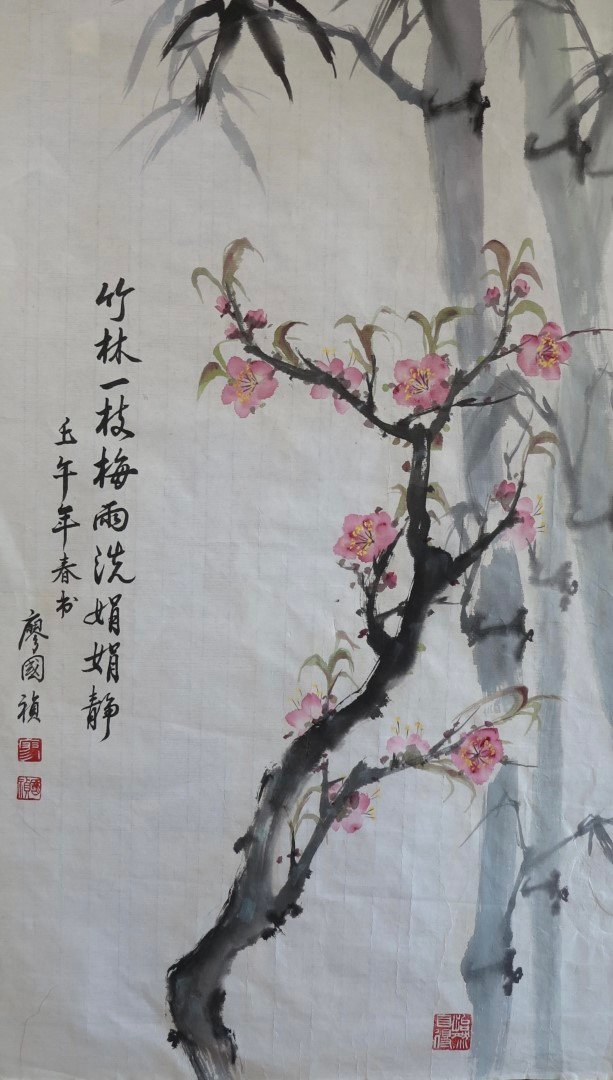 竹林一枝梅雨洗娟娟静
壬午年春书
廖國禎